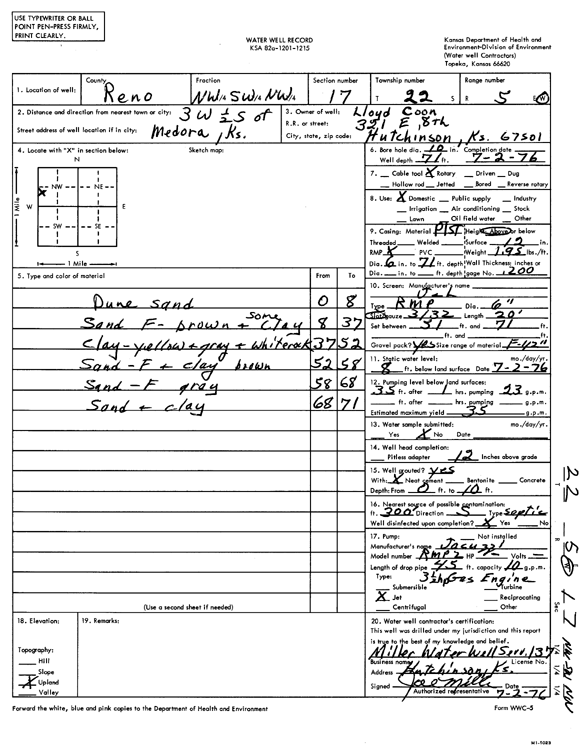 USE TYPEWRITER OR BALL
POINT PEN-PRESS FIRMLY,
PRINT CLEARLY.
WATER WELL RECORD
KSA 82a-1201-1215
Kansas Department of Health and
Environment-Division of Environment
(Water well Contractors)
Topeka, Kansas 66620
1. Location of well: County Reno Fraction NW¼ SW¼ NW¼ Section number 17 Township number T 22 S Range number R 5 E/W
2. Distance and direction from nearest town or city: 3W ½S of
Street address of well location if in city: Medora, Ks.
3. Owner of well: Lloyd Coon
R.R. or street: 321 E. 8th
City, state, zip code: Hutchinson, Ks. 67501
4. Locate with "X" in section below: Sketch map:
N
NW NE
W E
SW SE
S
1 Mile
1 Mile
X
5. Type and color of material From To
Dune sand 0 8
Sand F- brown + some clay 8 37
Clay-yellow+gray + whiterock 37 52
Sand-F + clay brown 52 58
Sand-F gray 58 68
Sand + clay 68 71
(Use a second sheet if needed)
6. Bore hole dia. 10 in. Completion date
Well depth 71 ft. 7-2-76
7. Cable tool X Rotary Driven Dug
Hollow rod Jetted Bored Reverse rotary
8. Use: X Domestic Public supply Industry
Irrigation Air conditioning Stock
Lawn Oil field water Other
9. Casing: Material Plst Height: Above or below
Threaded Welded Surface 12 in.
RMP X PVC Weight 1.95 lbs./ft.
Dia. 6 in. to 71 ft. depth Wall Thickness: inches or
Dia. in. to ft. depth gage No. .200
10. Screen: Manufacturer's name
Type RMP Dia. 6"
Slot/gauze 3/32 Length 20'
Set between 51 ft. and 71 ft.
ft. and ft.
Gravel pack? Yes Size range of material
11. Static water level: mo./day/yr.
8 ft. below land surface Date 7-2-76
12. Pumping level below land surfaces:
35 ft. after 1 hrs. pumping 23 g.p.m.
ft. after hrs. pumping g.p.m.
Estimated maximum yield 35 g.p.m.
13. Water sample submitted: mo./day/yr.
Yes X No Date
14. Well head completion:
Pitless adapter 12 Inches above grade
15. Well grouted? yes
With: X Neat cement Bentonite Concrete
Depth: From 0 ft. to 10 ft.
16. Nearest source of possible contamination:
ft. 300 Direction S Type Septic
Well disinfected upon completion? X Yes No
17. Pump: Not installed
Manufacturer's name Jacuzzi
Model number RMP2 HP Volts
Length of drop pipe 45 ft. capacity 10 g.p.m.
Type: 3½hp Gas Engine
Submersible Turbine
X Jet Reciprocating
Centrifugal Other
18. Elevation: 19. Remarks:
Topography:
Hill
Slope
X Upland
Valley
20. Water well contractor's certification:
This well was drilled under my jurisdiction and this report
is true to the best of my knowledge and belief.
Miller Water Well Serv. 137
Business name License No.
Address Hutchinson, Ks.
Signed Date 7-2-76
Authorized representative
Forward the white, blue and pink copies to the Department of Health and Environment
Form WWC-5
T 22 R 5 W Sec 17 NW SW NW
1/4 1/4 1/4